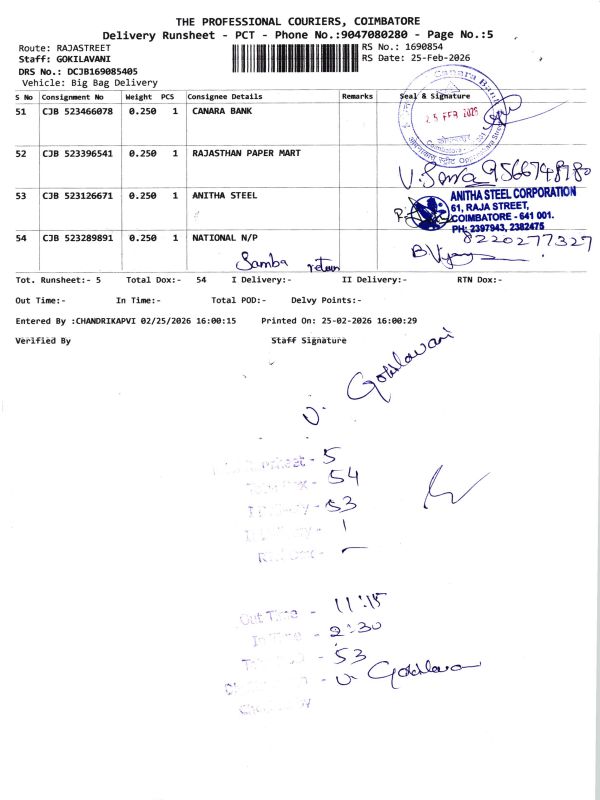 THE PROFESSIONAL COURIERS, COIMBATORE
Delivery Runsheet - PCT - Phone No.:9047080280 - Page No.:5
Route: RAJASTREET
RS No.: 1690854
Staff: GOKILAVANI
RS Date: 25-Feb-2026
DRS No.: DCJB169085405
Vehicle: Big Bag Delivery
S No Consignment No Weight PCS Consignee Details Remarks Seal & Signature
51 CJB 523466078 0.250 1 CANARA BANK
Canara Bank
25 FEB 2026
52 CJB 523396541 0.250 1 RAJASTHAN PAPER MART
9566748780
53 CJB 523126671 0.250 1 ANITHA STEEL
ANITHA STEEL CORPORATION
61, RAJA STREET,
COIMBATORE - 641 001.
PH: 2397943, 2382475
54 CJB 523289891 0.250 1 NATIONAL N/P
8220277327
Samba return
Tot. Runsheet:- 5 Total Dox:- 54 I Delivery:- II Delivery:- RTN Dox:-
Out Time:- In Time:- Total POD:- Delvy Points:-
Entered By :CHANDRIKAPVI 02/25/2026 16:00:15 Printed On: 25-02-2026 16:00:29
Verified By Staff Signature
V. Gokilavani
5
54
53
1
Out Time - 11:15
In Time - 2:30
53
V. Gokilavani